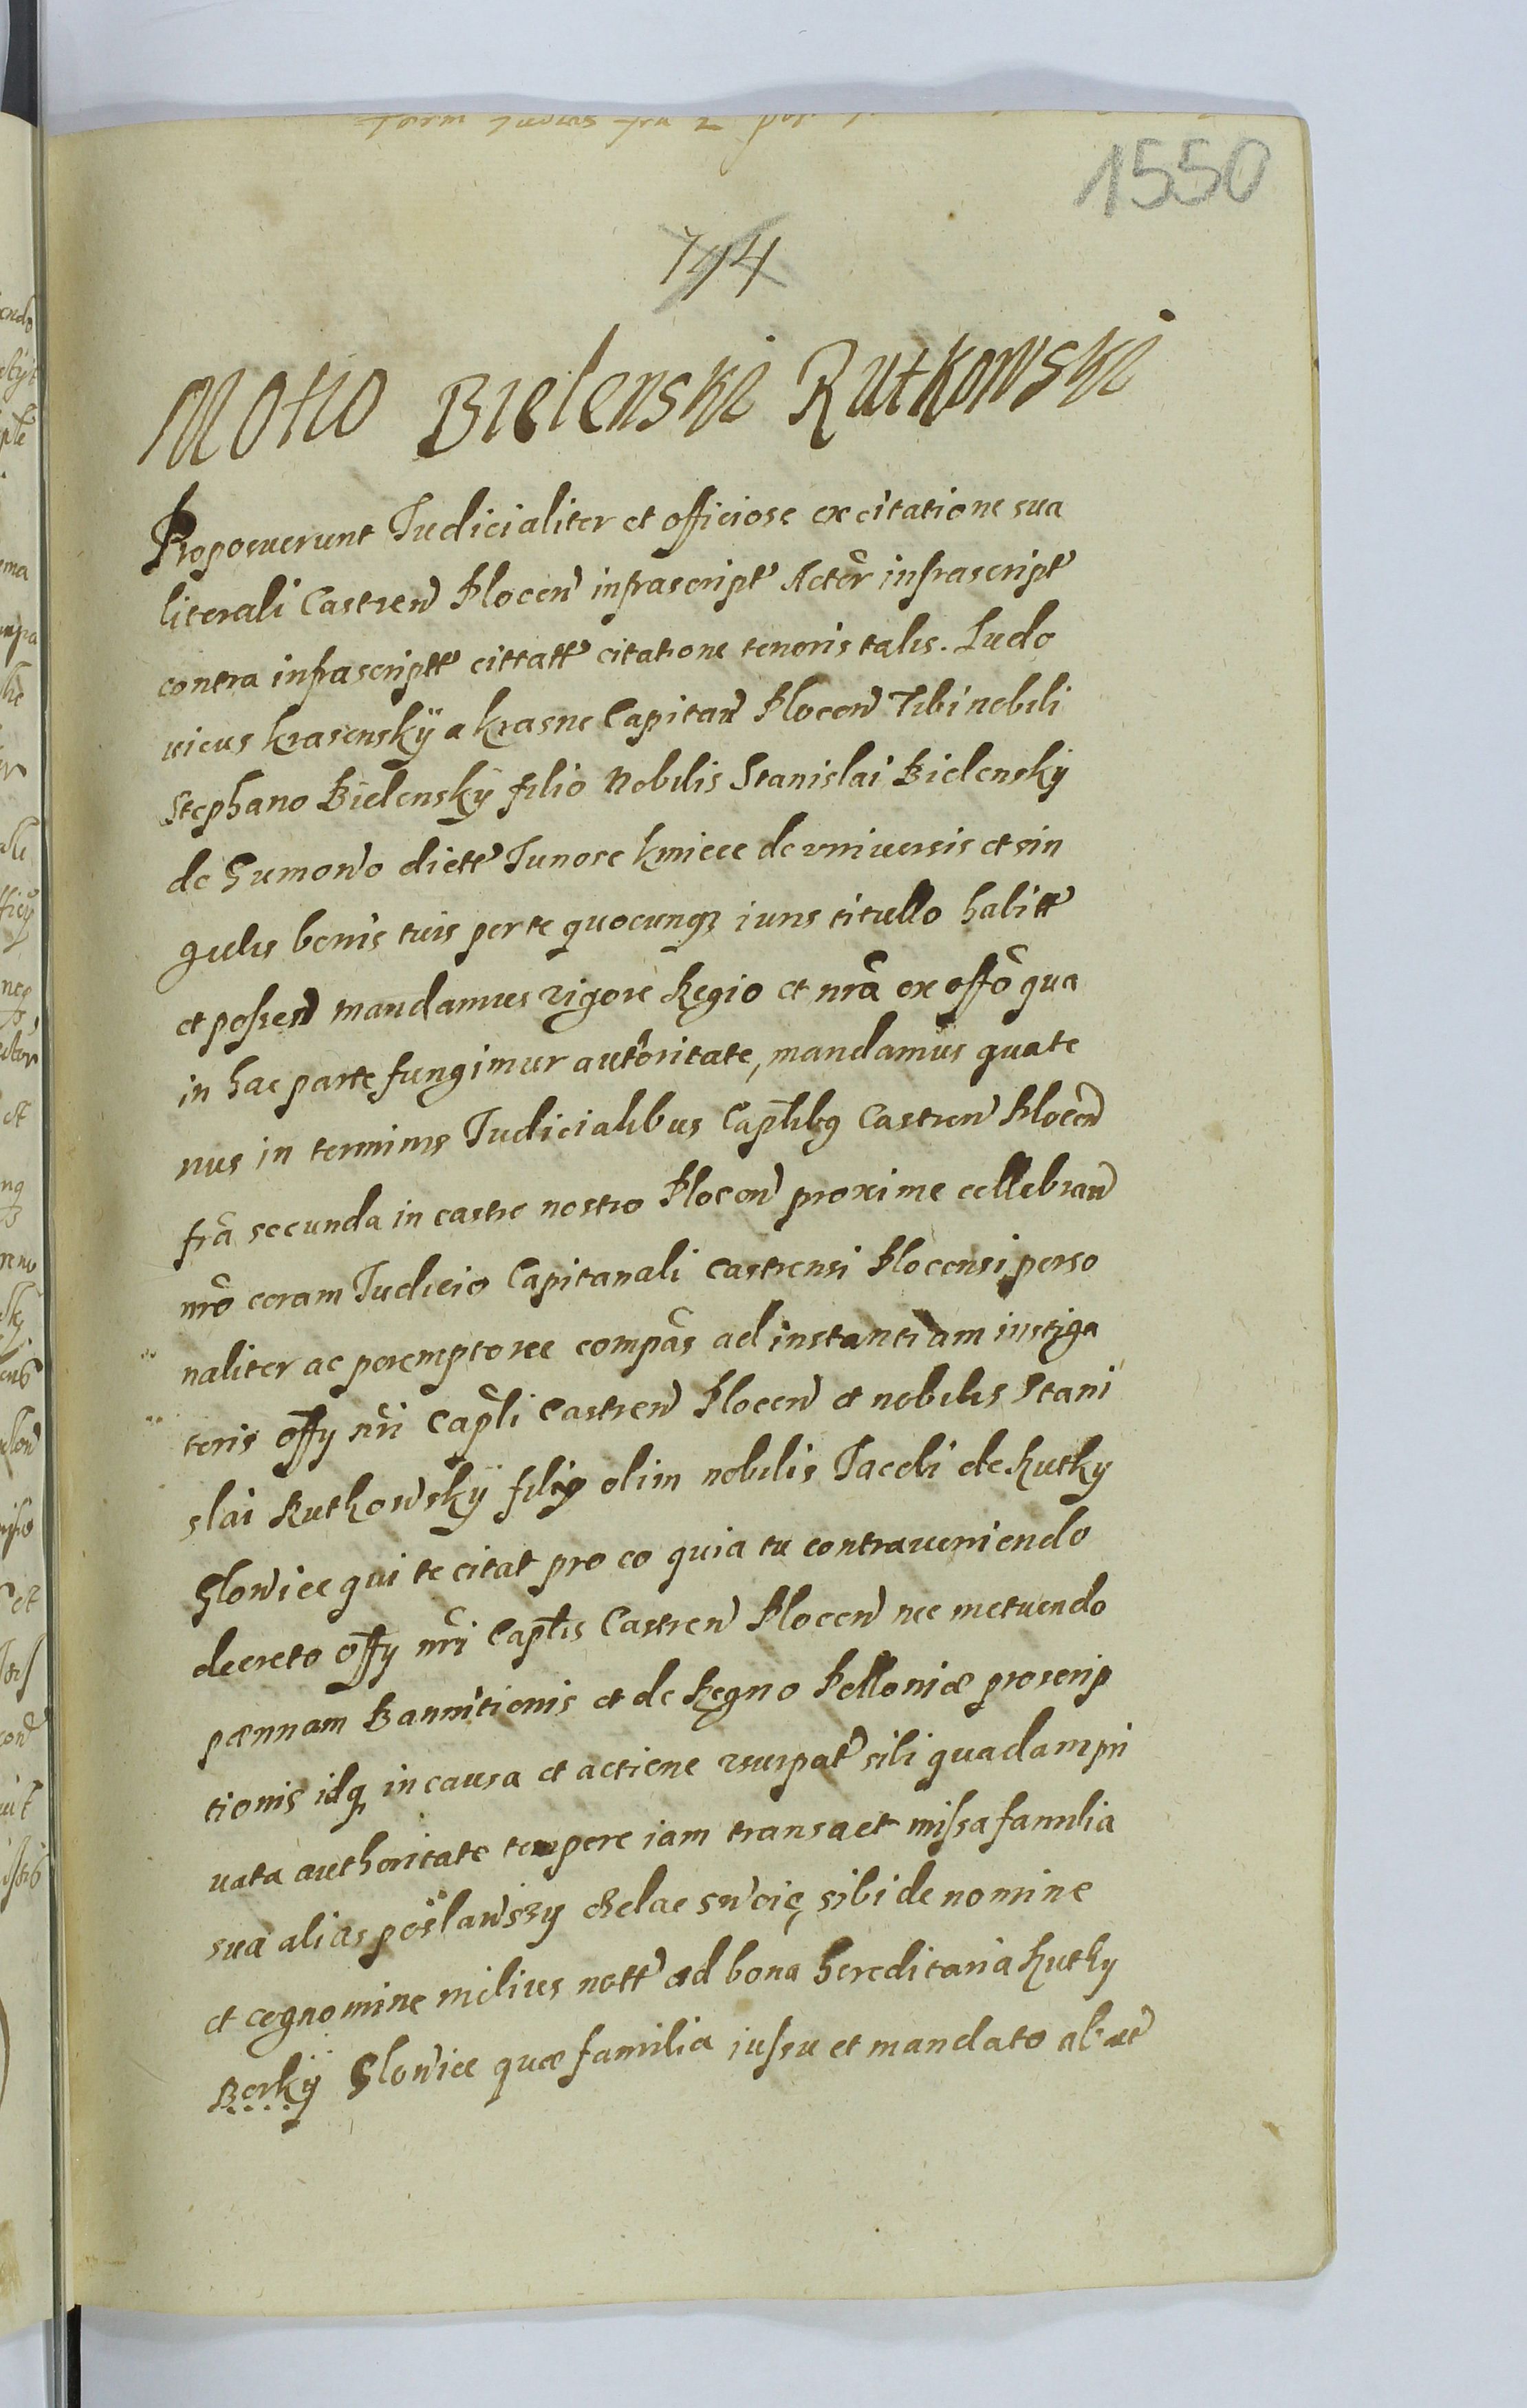 1550
744
Motio Bielenski Rutkowski
Proposuerunt Judicialiter et officiose ex citatione sua
literali Castren Plocen infrascript Actor infrascript
contra infrascriptt cittatt citatione tenoris talis. Ludo
uicus Krasenskÿ a Krasne Capitan Plocen Tibi nobili
Stephano Bielenskÿ filio Nobilis Stanislai Bielensky
de Gumowo dictt Junose kmiece de vniuersis et sin
gulis bonis tuis per te quocunq iuris titullo habitt
et possess mandamus rigore Regio et nrã ex offõ qua
in hac parte fungimur autoritate, mandamus quate
nus in terminis Judicialibus Captlibq Castren Plocen
frã secunda in castro nostro Plocen proxime cellebran
nrõ coram Judicio Capitanali Castrensi Plocensi perso
naliter ac peremptorie compãs ad instantiam instiga
toris offy nri Captli Castren Plocen et nobilis Stani
slai Rutkowskÿ filÿ olim nobilis Jacobi de Rutky
Glowice qui te citat pro eo quia tu contraueniendo
decreto offy nri Captlis Castren Plocen nec metuendo
pœnnam Bannitionis et de Regno Polloniæ proscrip
tionis idq in causa et actione vsurpat sibi quadam pri
uata authoritate tempore iam transact missa familia
sua alias posławszy czelac swoię sibi de nomine
et cognomine melius nott ad bona hereditaria Rutky
Borkÿ Glowice quæ familia iussu et mandato ab